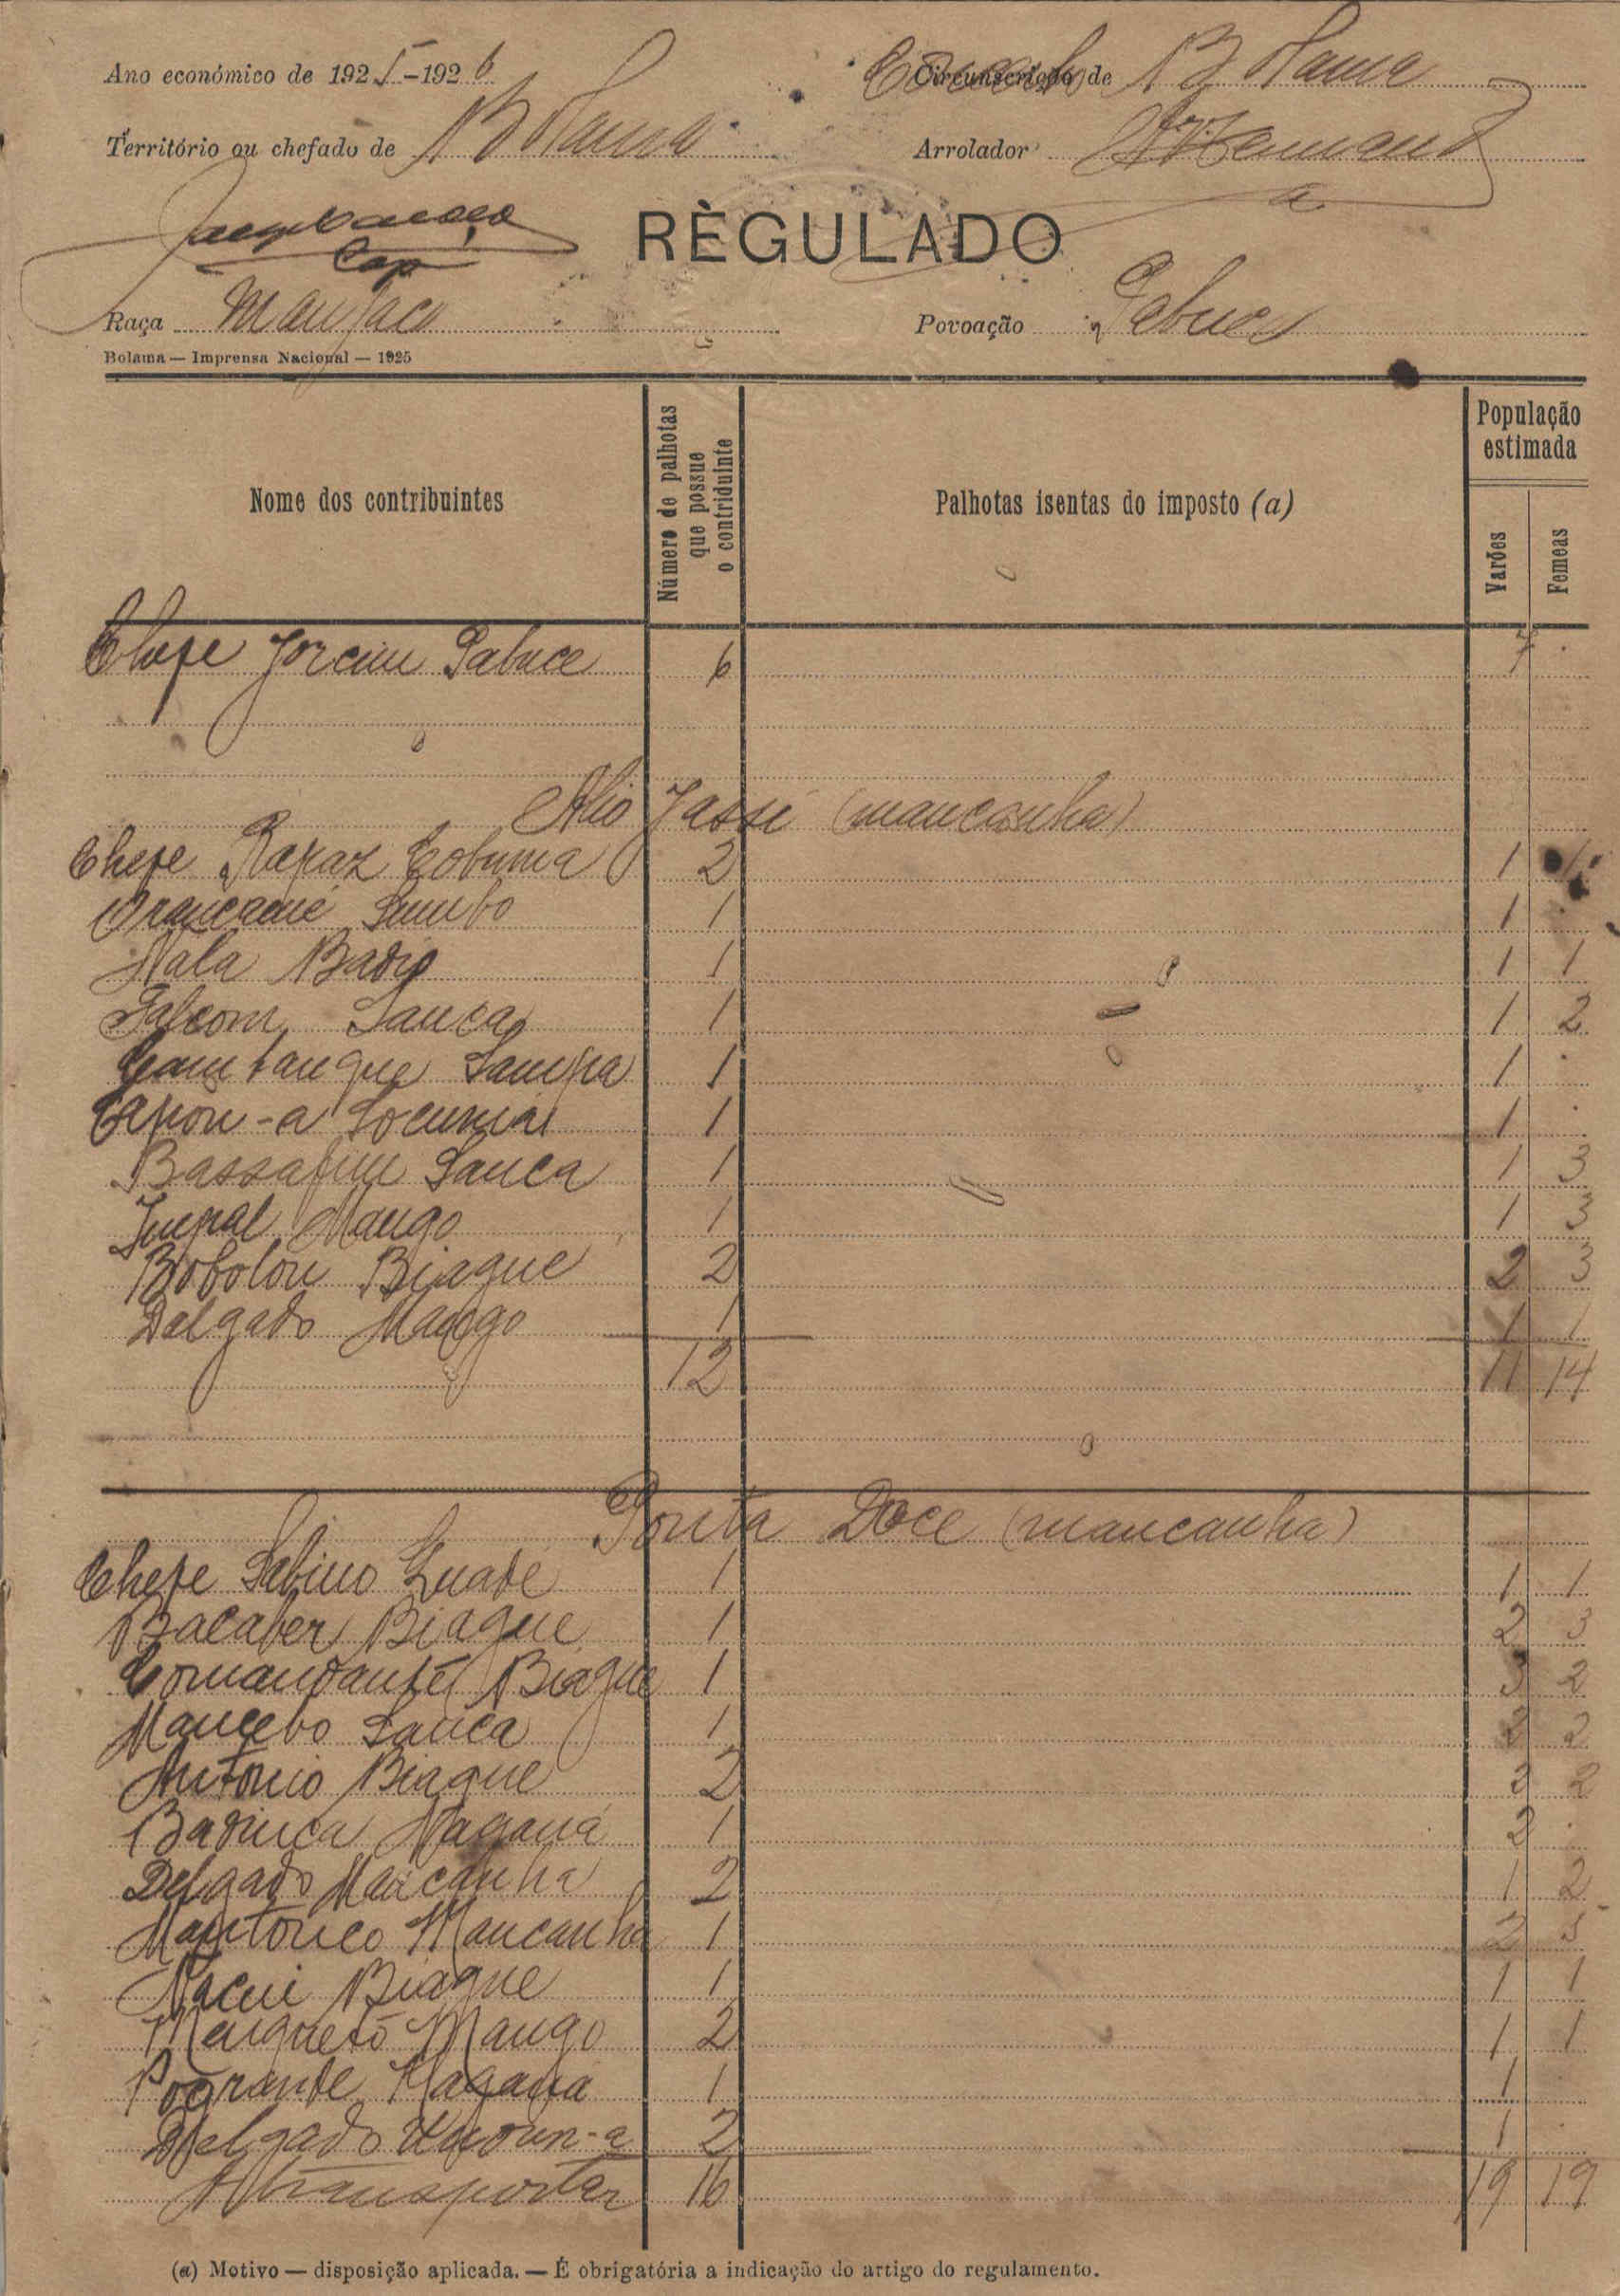 Ano económico de 1925-1926
Concelho de Bolama
Território ou chefado de Bolama
Arrolador
RÈGULADO
Cap
Raça Manjaco
Povoação Gabuer
Bolama — Imprensa Nacional — 1925
Nome dos contribuintes
Número de palhotas que possue o contriduinte
Palhotas isentas do imposto (a)
População estimada
Varões
Femeas
Chefe Jorcim 6 7
Alio Jassi (mancanha)
Chefe Rapaz Cobuma 2 1 1
Sumbo 1 1
Nala Badig 1 1 1
Falcom Sanca 1 1 2
Sampa 1 1
1 1
Bassafim Sanca 1 1 3
Jugral Mango 1 1 3
Bobolou Biague 2 2 3
Delgado Mango 1 1 1
12 11 14
Ponta Doce (mancanha)
Chefe Sabino 1 1 1
Bacaber Biague 1 2 3
Comandante Biague 1 3 2
Mancebo Sanca 1 2 2
António Biague 2 2 2
Badinca Nagana 1 2
Delgado Mancanha 2 1 2
Mancanha 1 2 5
Nacui Biague 1 1 1
Mango 2 1 1
Pogrande Nagana 1 1
Delgado 2 1
A transportar 16 19 19
(a) Motivo — disposição aplicada. — É obrigatória a indicação do artigo do regulamento.